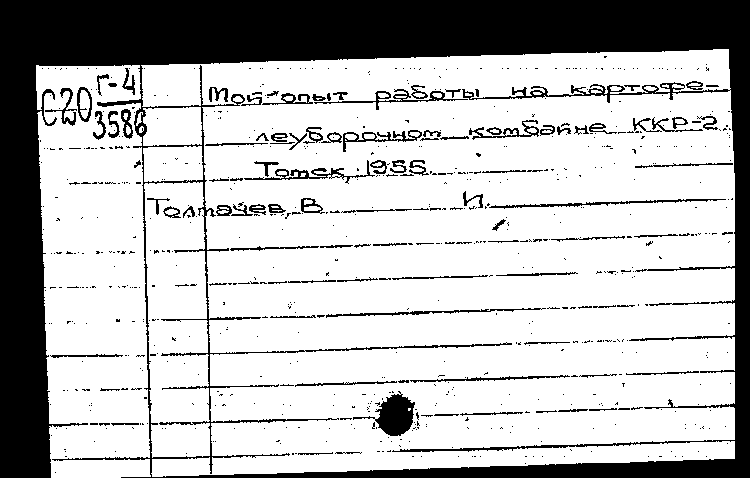 С20 Г-4
3586
Мой опыт работы на картофе-
леуборочном комбайне ККР-2.
Томск, 1955.
Толмачев, В. И.